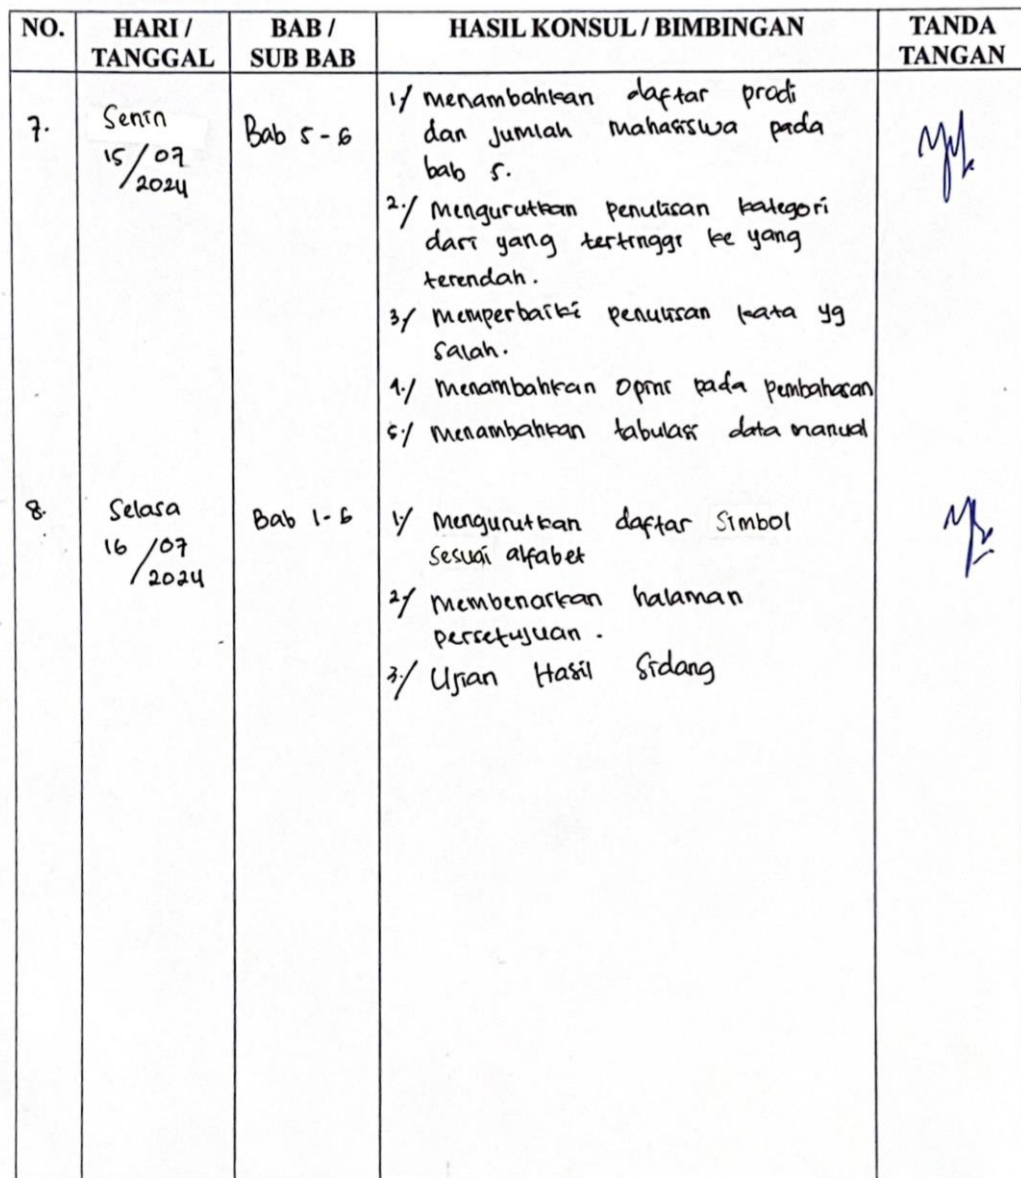 NO. HARI / TANGGAL BAB / SUB BAB HASIL KONSUL / BIMBINGAN TANDA TANGAN
7. Senin 15/07/2024 Bab 5-6
1./ Menambahkan daftar prodi
dan jumlah mahasiswa pada
bab 5.
2./ Mengurutkan penulisan kategori
dari yang tertinggi ke yang
terendah.
3/ Memperbaiki penulisan kata yg
salah.
4./ Menambahkan Opini pada pembahasan
5./ Menambahkan tabulasi data manual
8. Selasa 16/07/2024 Bab 1-6
1./ Mengurutkan daftar Simbol
Sesuai alfabet
2/ Membenarkan halaman
persetujuan.
3./ Ujian Hasil Sidang